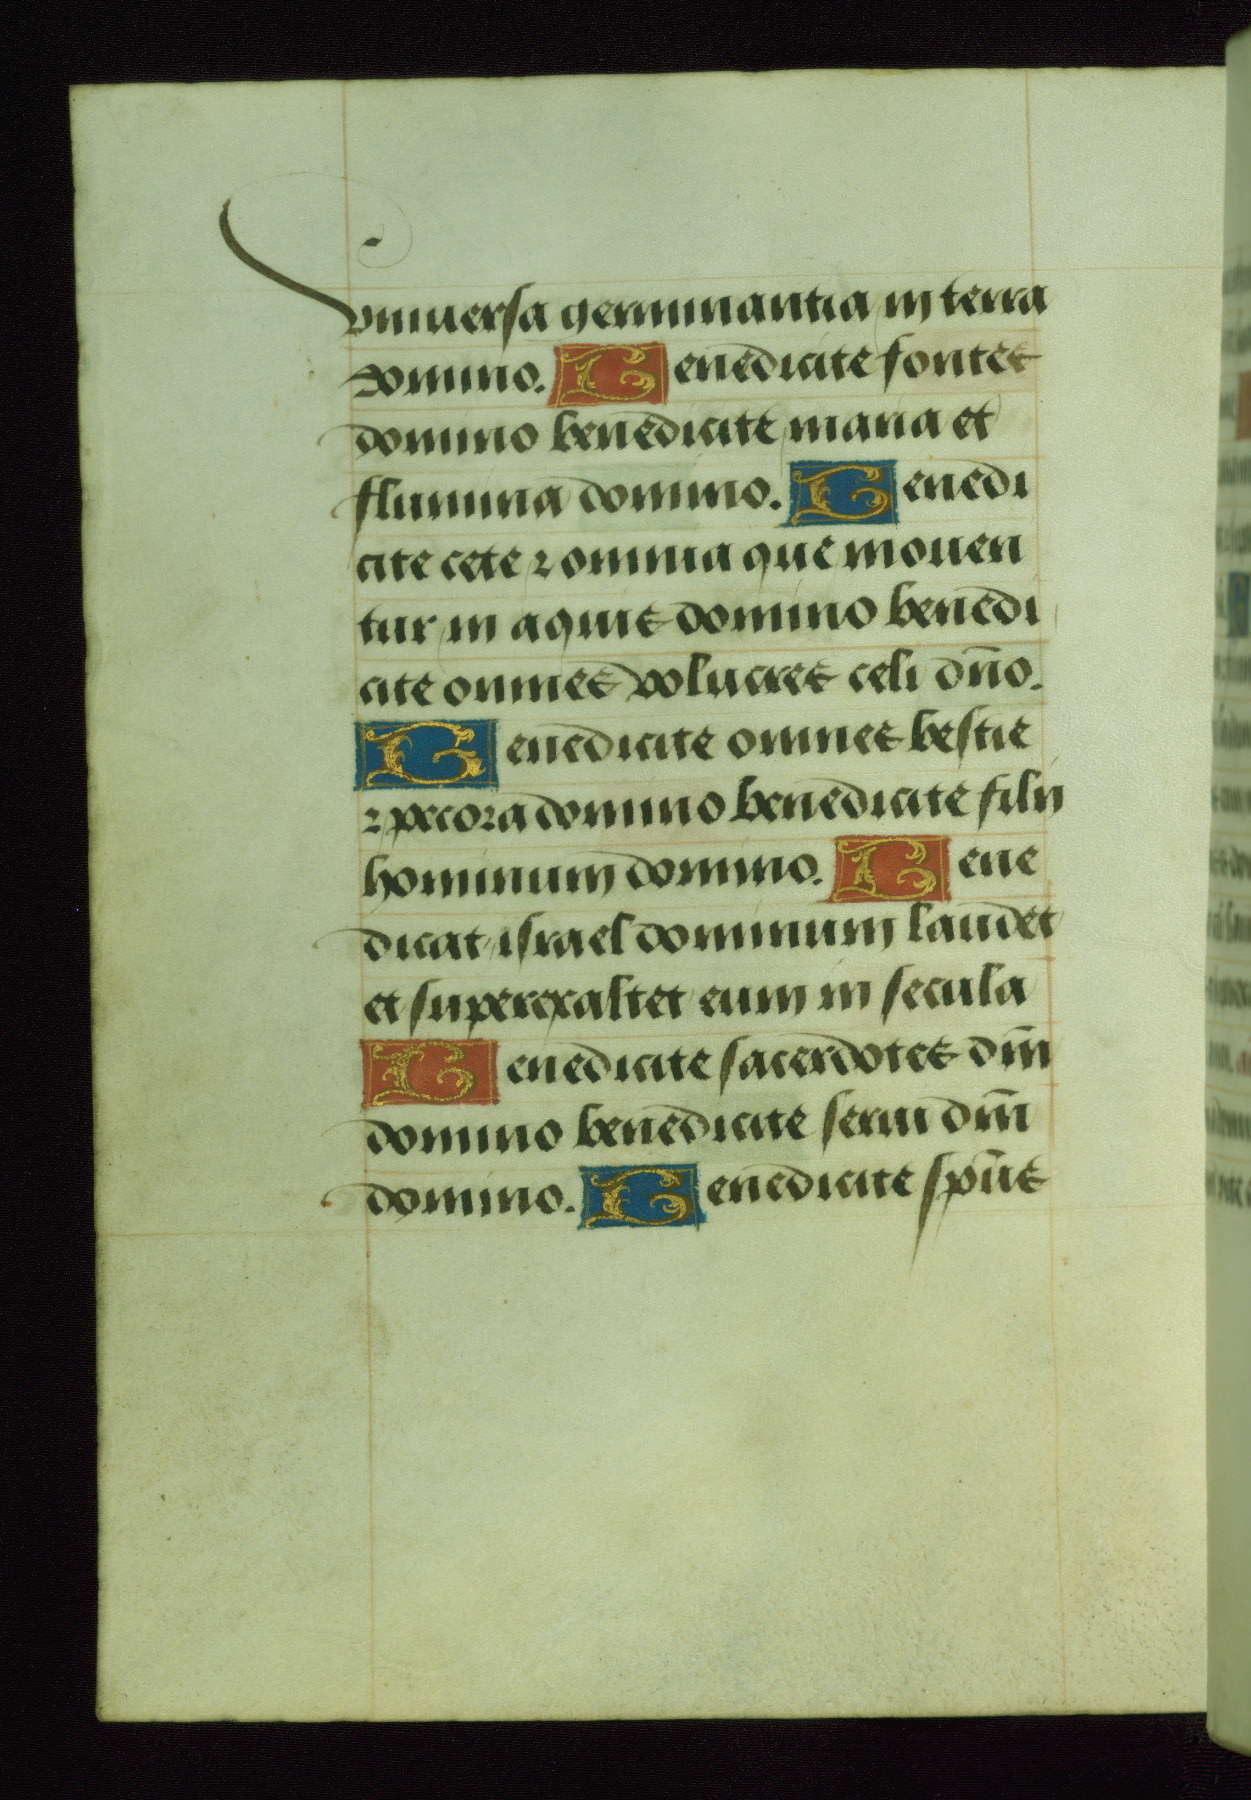 vniuersa germinantia in terra
domino. Benedicite fontes
domino benedicite maria et
flumina domino. Benedi
cite cete ⁊ omnia que mouen
tur in aquis domino benedi
cite omnes volucres celi dn̄o.
Benedicite omnes bestie
⁊ pecora domino benedicite filij
hominum domino. Bene
dicat israel dominum laudet
et superexaltet eum in secula
Benedicite sacerdotes dn̄i
domino benedicite serui dn̄i
domino. Benedicite sp̄us